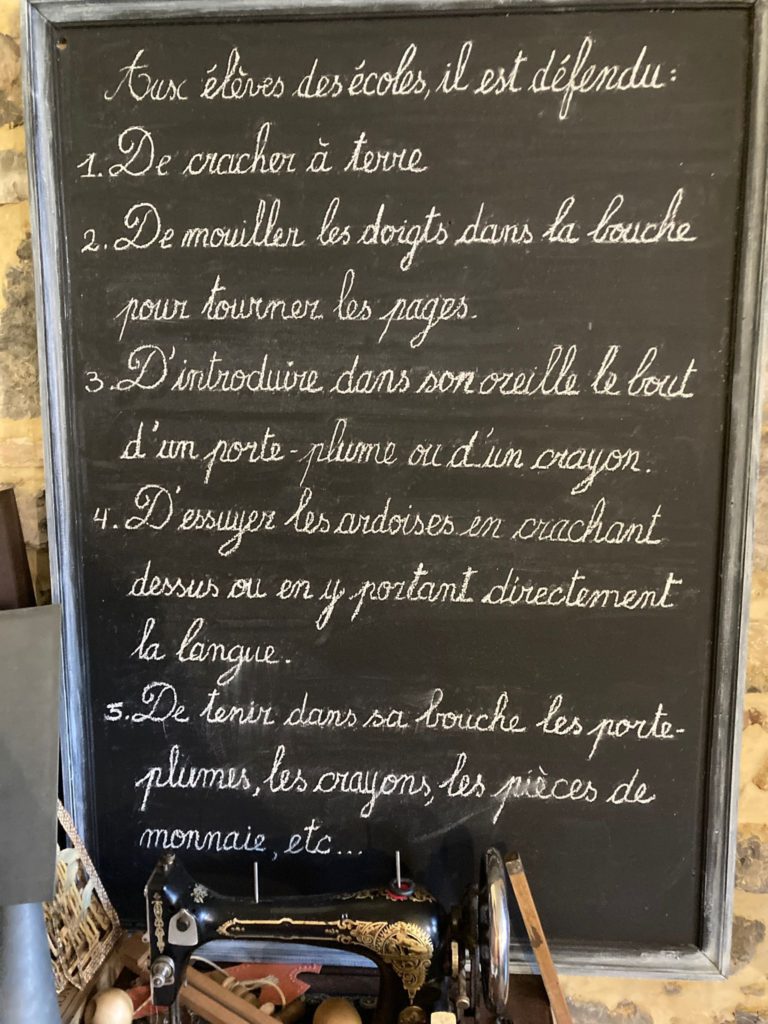 Aux élèves des écoles, il est défendu :
1. De cracher à terre
2. De mouiller les doigts dans la bouche
pour tourner les pages.
3. D'introduire dans son oreille le bout
d'un porte-plume ou d'un crayon.
4. D'essuyer les ardoises en crachant
dessus ou en y portant directement
la langue.
5. De tenir dans sa bouche les porte-
plumes, les crayons, les pièces de
monnaie, etc...